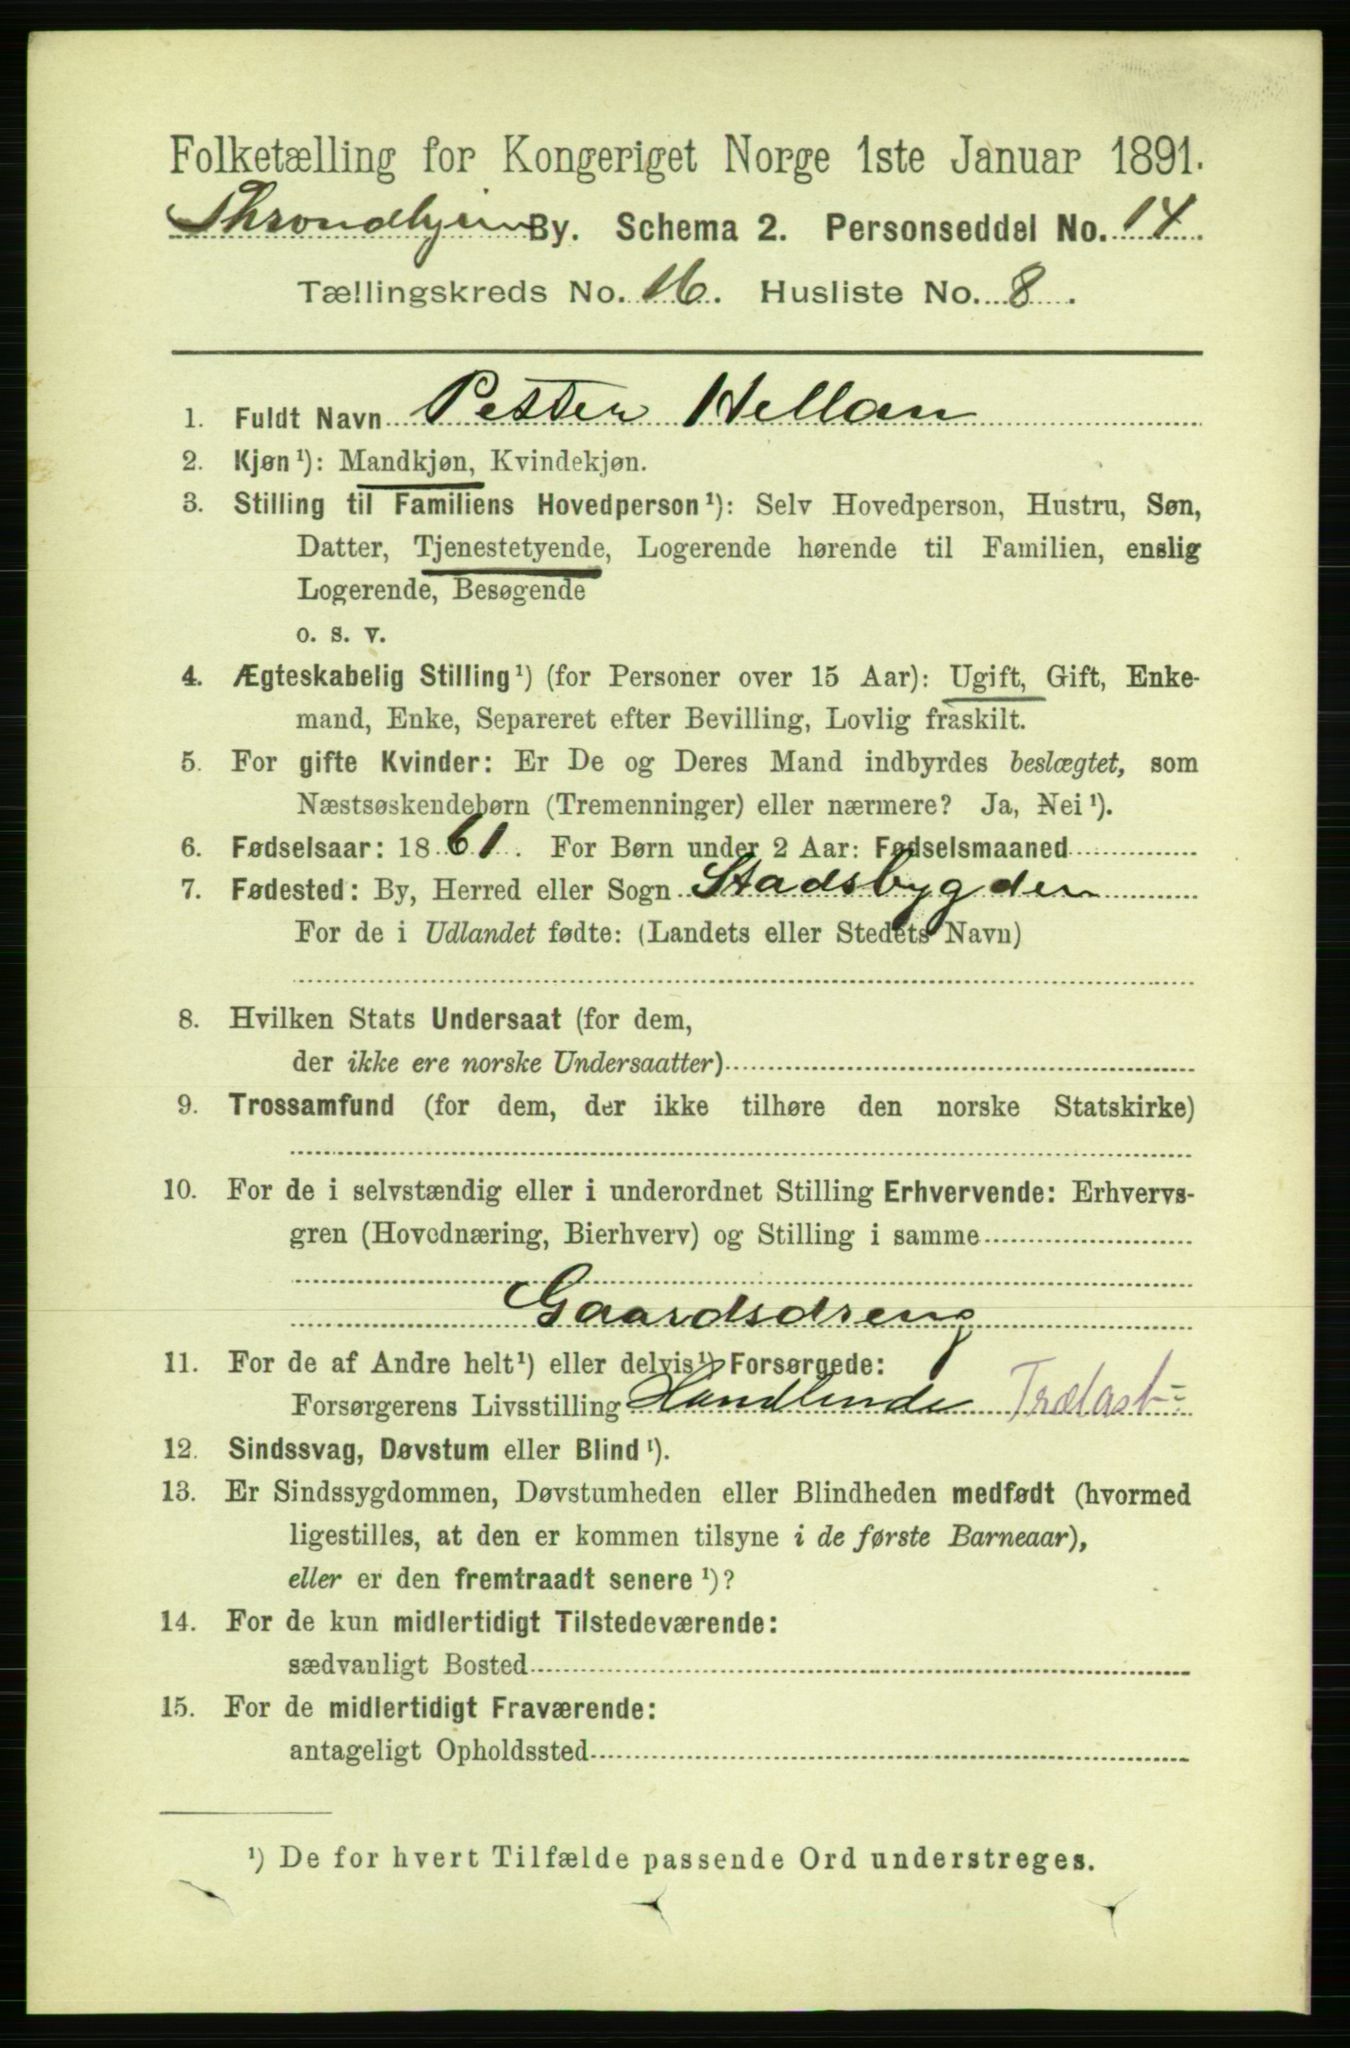 Folketælling for Kongeriget Norge 1ste Januar 1891.
Throndhjem By. Schema 2. Personseddel No. 14.
Tællingskreds No. 16. Husliste No. 8.
1. Fuldt Navn Petter Hellan
2. Kjøn¹): Mandkjøn, Kvindekjøn.
3. Stilling til Familiens Hovedperson¹): Selv Hovedperson, Hustru, Søn,
Datter, Tjenestetyende, Logerende hørende til Familien, enslig
Logerende, Besøgende
o. s. v.
4. Ægteskabelig Stilling¹) (for Personer over 15 Aar): Ugift, Gift, Enke-
mand, Enke, Separeret efter Bevilling, Lovlig fraskilt.
5. For gifte Kvinder: Er De og Deres Mand indbyrdes beslægtet, som
Næstsøskendebørn (Tremenninger) eller nærmere? Ja, Nei¹).
6. Fødselsaar: 1861. For Børn under 2 Aar: Fødselsmaaned
7. Fødested: By, Herred eller Sogn Stadsbygden
For de i Udlandet fødte: (Landets eller Stedets Navn)
8. Hvilken Stats Undersaat (for dem,
der ikke ere norske Undersaatter)
9. Trossamfund (for dem, der ikke tilhøre den norske Statskirke)
10. For de i selvstændig eller i underordnet Stilling Erhvervende: Erhvervs-
gren (Hovednæring, Bierhverv) og Stilling i samme
Gaardsdreng
11. For de af Andre helt¹) eller delvis¹) Forsørgede:
Forsørgerens Livsstilling Handlende Trælast-
12. Sindssvag, Døvstum eller Blind¹).
13. Er Sindssygdommen, Døvstumheden eller Blindheden medfødt (hvormed
ligestilles, at den er kommen tilsyne i de første Barneaar),
eller er den fremtraadt senere¹)?
14. For de kun midlertidigt Tilstedeværende:
sædvanligt Bosted
15. For de midlertidigt Fraværende:
antageligt Opholdssted
¹) De for hvert Tilfælde passende Ord understreges.